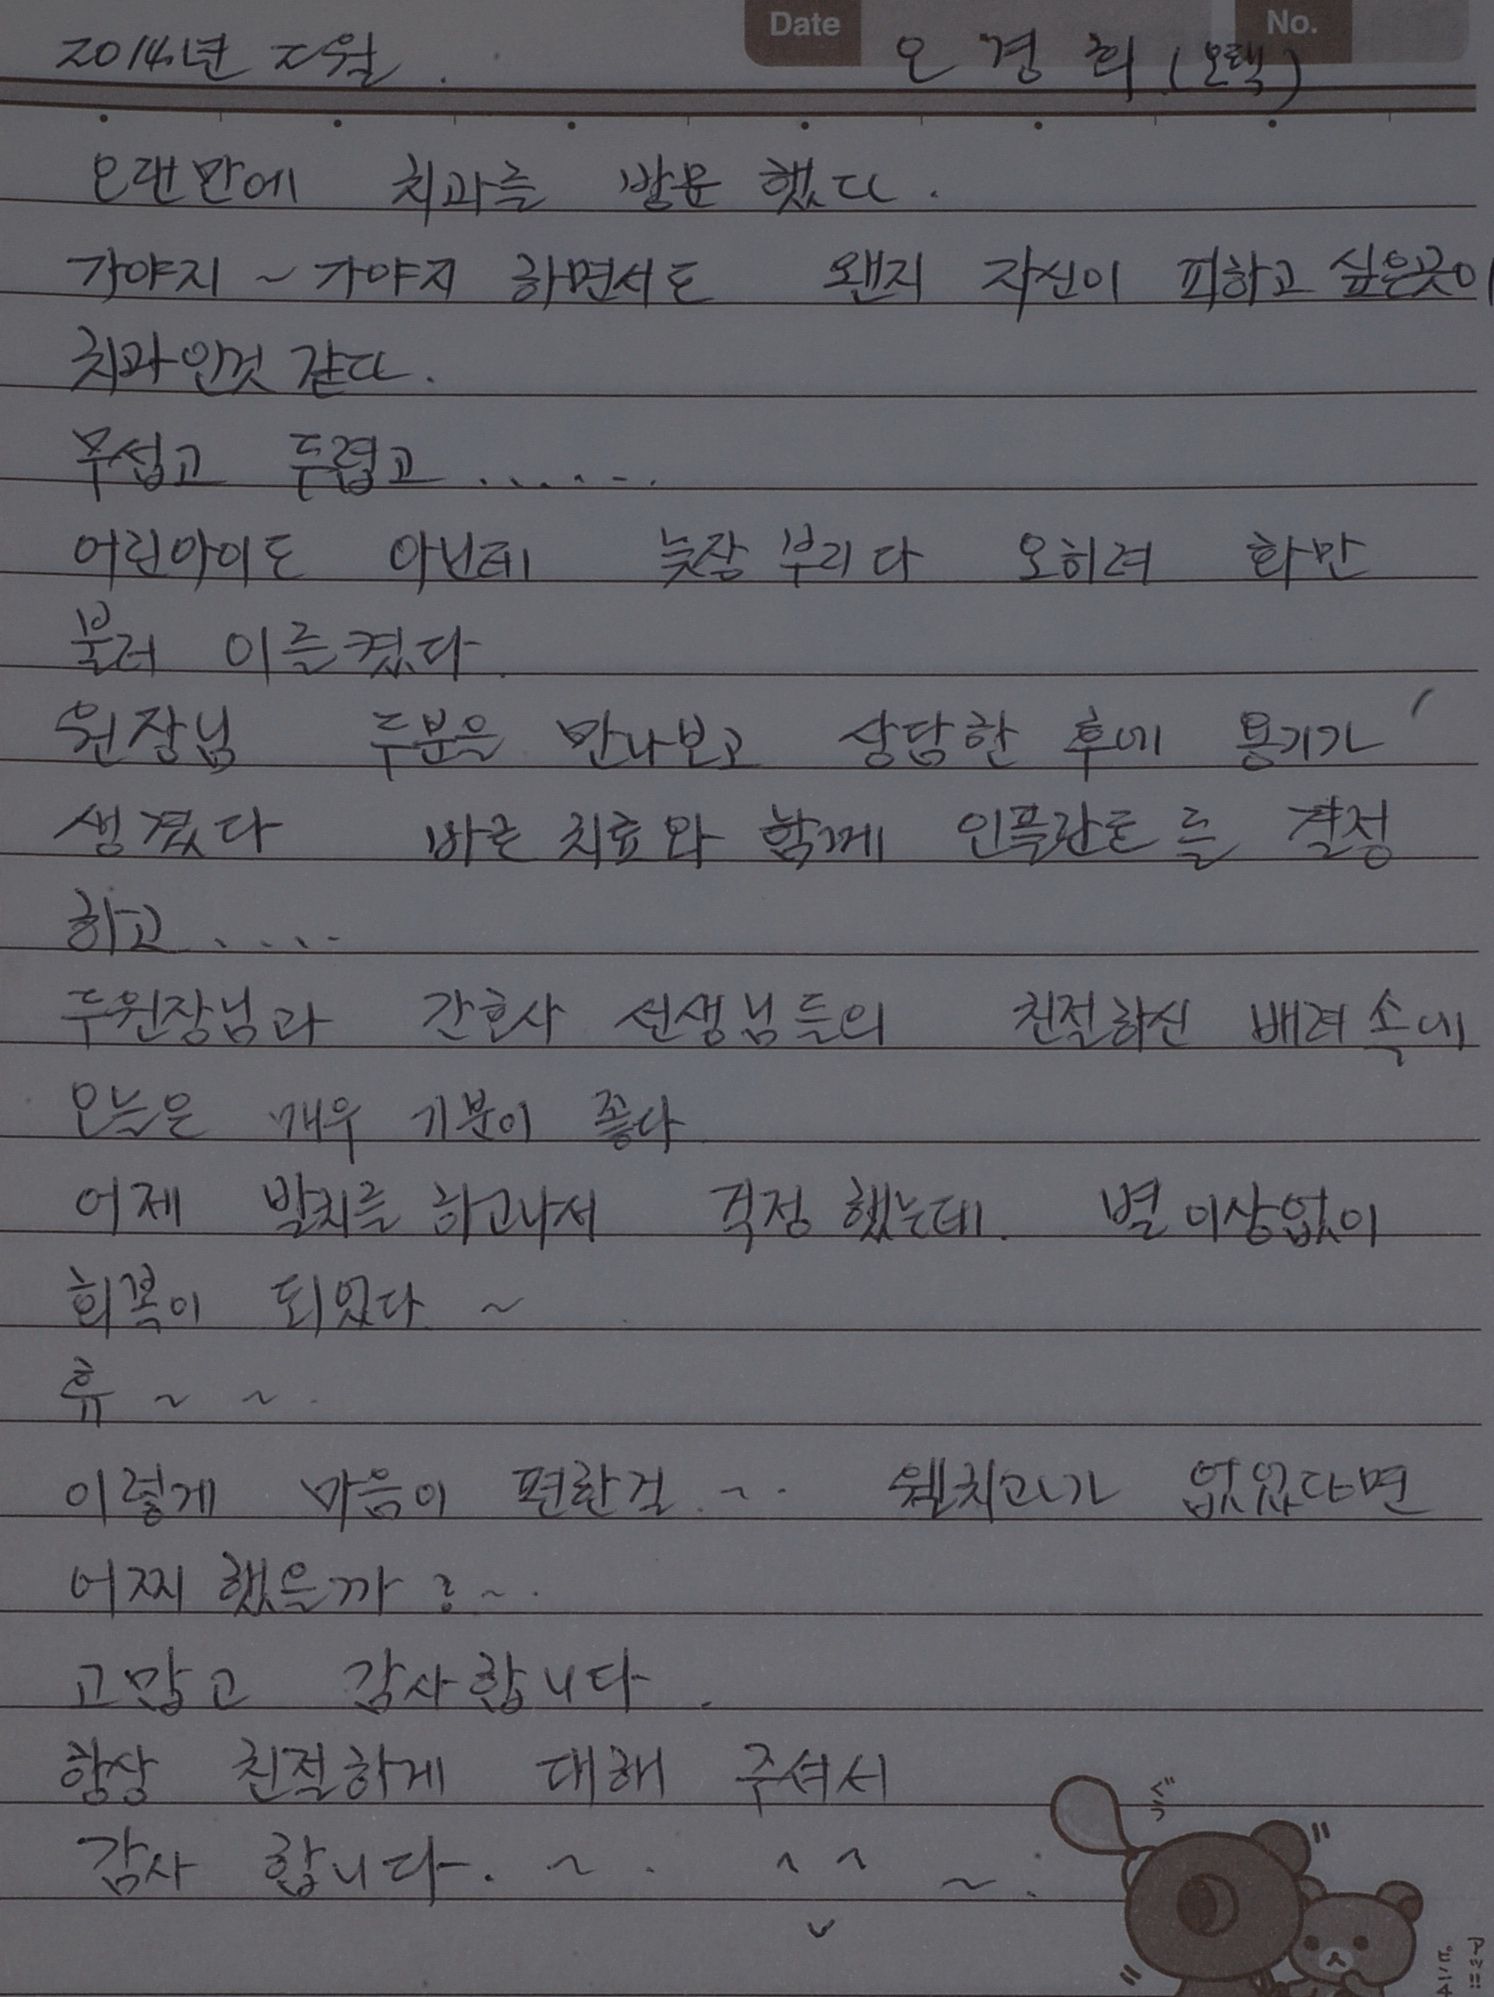 Date No.
2014년 오경희 (오택)
오랜만에 치과를 방문 했다.
가야지 ~ 가야지 하면서도 왠지 자신이 피하고 싶은곳이
치과인것 같다.
무섭고 두렵고 .......
어린아이도 아닌데 늦장 부리다 오히려 화만
불러 이르켰다.
원장님 두분을 만나보고 상담한 후에 용기가
생겼다 바른 치료와 함께 인플란트를 결정
하고 .....
두원장님과 간호사 선생님들의 친절하신 배려속에
오늘은 매우 기분이 좋다
어제 발치를 하고나서 걱정 했는데. 별 이상없이
회복이 되었다 ~
휴 ~ ~
이렇게 마음이 편한걸 .~.. 웰치과가 없었다면
어찌 했을까 ? ~ .
고맙고 감사합니다.
항상 친절하게 대해 주셔서
감사 합니다. ~ . ^ ^ ~ .
ぐぅ
アッ!!